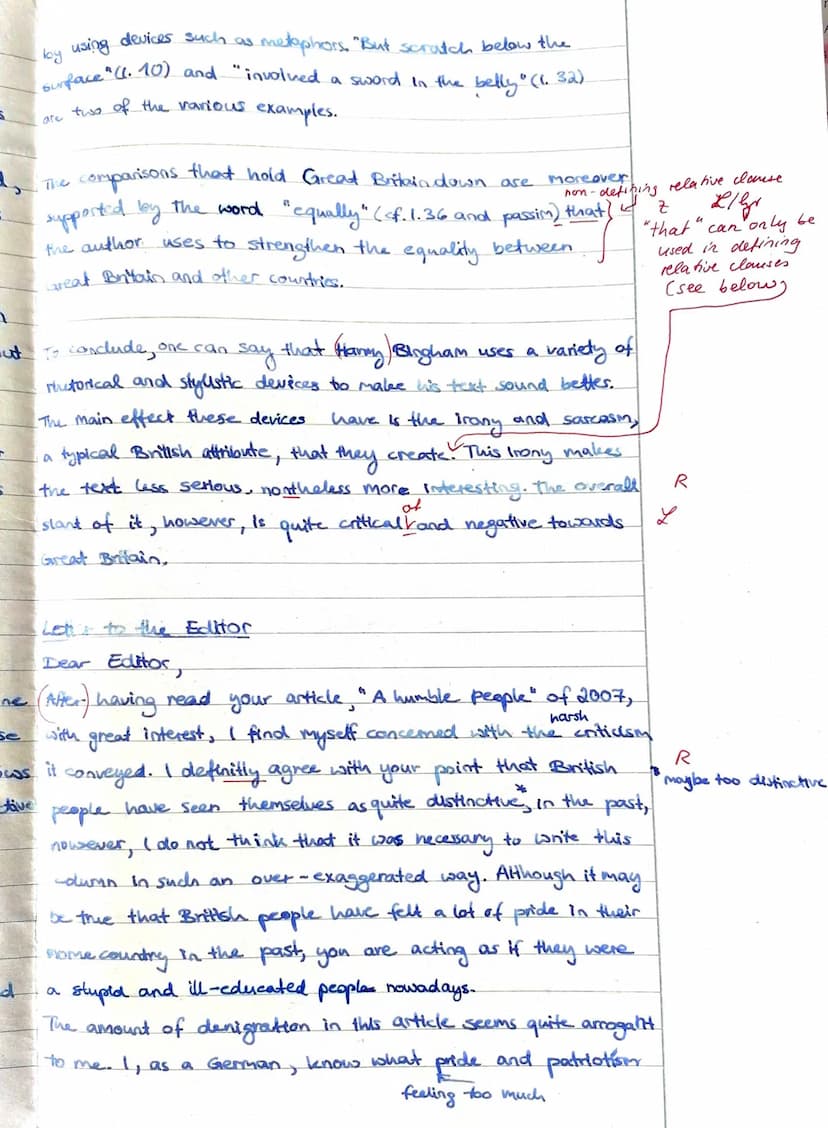 by using devices such as metaphors. "But scratch below the
surface" (l. 10) and "involved a sword in the belly" (l. 32)
are two of the various examples.
The comparisons that hold Great Britain down are moreover
non-defining relative clause
supported by the word "equally" (cf. l. 36 and passim) that
Z L/gr
the author uses to strengthen the equality between
Great Britain and other countries.
"that" can only be
used in defining
relative clauses
(see below)
To conclude, one can say that (Harry) Bingham uses a variety of
rhetorical and stylistic devices to make his text sound better.
The main effect these devices have is the irony and sarcasm,
a typical British attribute, that they create. This irony makes
the text less serious, nontheless more interesting. The overall
R
slant of it, however, is quite critical and negative towards
of
L
Great Britain.
Letter to the Editor
Dear Editor,
(After) having read your article, "A humble people" of 2007,
with great interest, I find myself concerned with the criticism
harsh
it conveyed. I definitly agree with your point that British
R
people have seen themselves as quite distinctive*, in the past,
* maybe too distinctive
however, I do not think that it was necessary to write this
column in such an over-exaggerated way. Although it may
be true that British people have felt a lot of pride in their
home country in the past, you are acting as if they were
a stupid and ill-educated people nowadays.
The amount of denigration in this article seems quite arrogant
to me. I, as a German, know what pride and patriotism
feeling too much